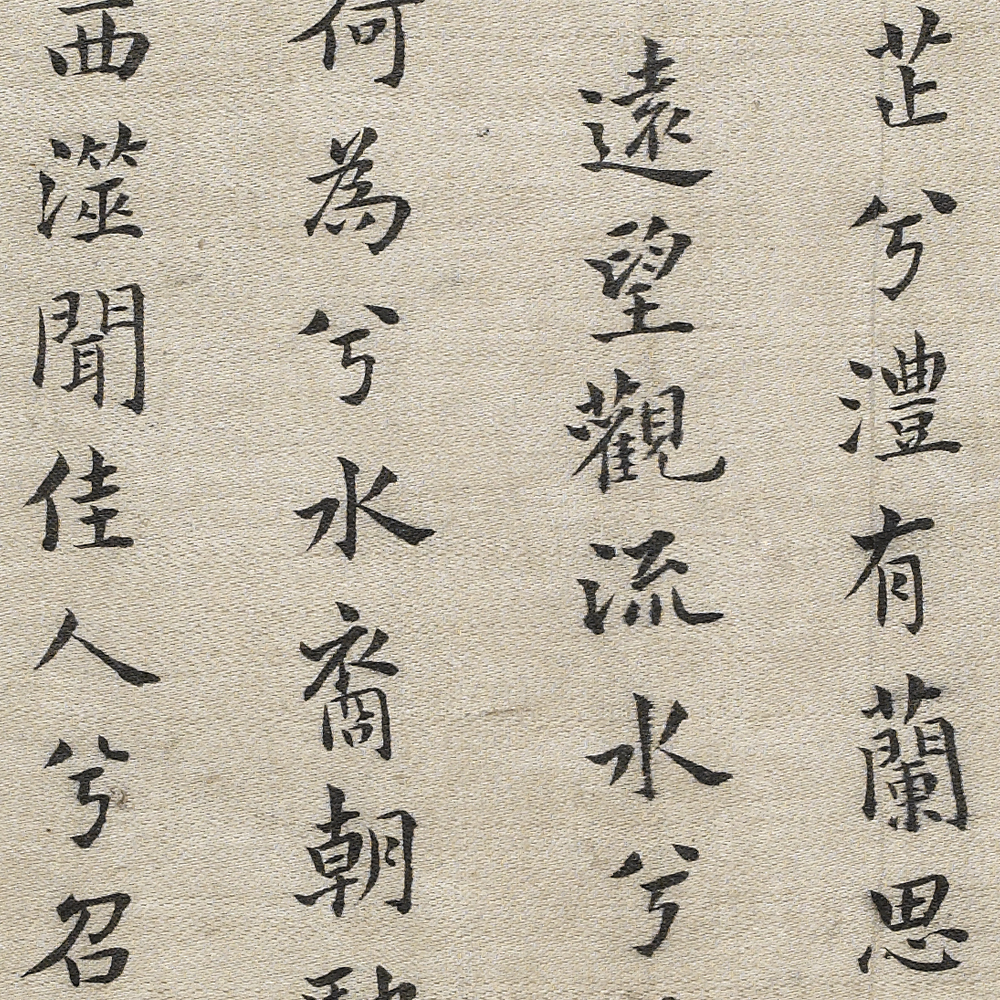 芷兮澧有蘭思
遠望觀流水兮
何為兮水裔朝
西澨聞佳人兮召